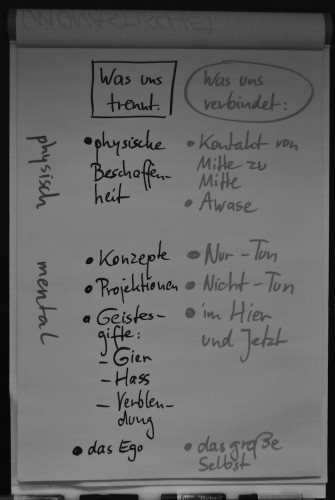 Was uns
trennt:
Was uns
verbindet:
physisch
• physische
Beschaffen-
heit
• Kontakt von
Mitte zu
Mitte
• Awase
mental
• Konzepte
• Projektionen
• Geistes-
gifte:
- Gier
- Hass
- Verblen-
dung
• das Ego
• Nur-Tun
• Nicht-Tun
• im Hier
und Jetzt
• das große
Selbst